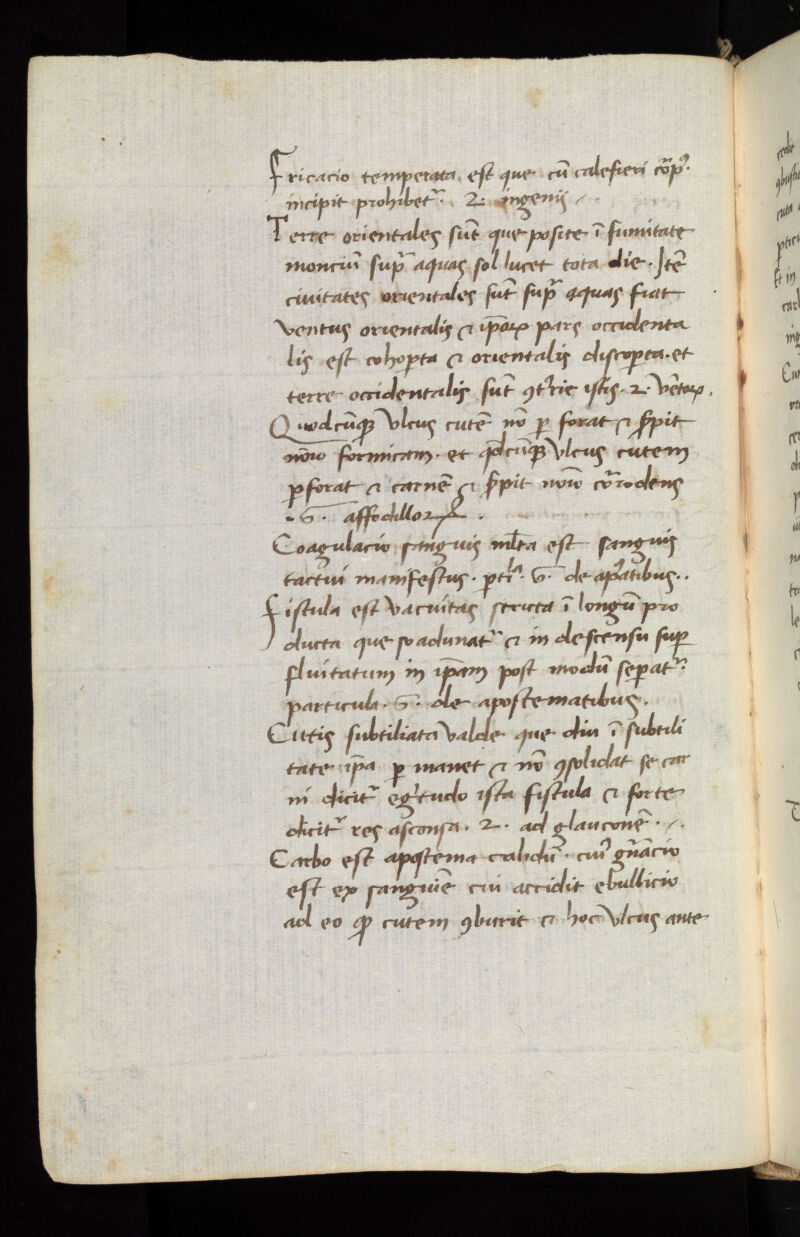 Fricacio temperata est que cū calefieri cōrpꝰ·
incipit prohibetᷣ· 2· ingenij
Terre orientales sūt que posite ī sumitate
monciū supᷓ aquas sol lucet tota die · Itē
civitates orientales sūt supᷓ aquas fiat
ventus orientalis ⁊ ip̄aꝝ pars occidenta
lis est cohoꝑta ⁊ orientalis discoꝑta · et
terre occidentalis sūt ꝯtᷓrie istis · 2· vētoꝝ ·
Quodcūqꝫ Vlcus cutē nō ꝑ forat ⁊ s̄pit
noīo formicam · et qd̄cūqꝫ Vlcus cutem
ꝑforat ⁊ carnē ⁊ s̄pit noīo cōrodens
· 6· affodilloꝝ ·
Coagulacio sanguis ml̄ta est sanguis
tactui manifestus · ꝑtīᵃ · 6· de apᷓatibus ··
Fistula est vacuitas stricta ī longū pro
ducta que soadunatᷣ ⁊ in descensu suꝑ
fluitatum in ip̄am post modū seꝑatᷣ·
particula · 6· de apostematibus ·
Cutis subtiliata valde que diu ī subtili
tate ip̄a ꝑ manet ⁊ nō ꝯsolidat se car
ni dicitᷣ egᷓtudo ista fistula ⁊ forte
dicitᷣ res asconsa · 2· ad glauconē ·
Carbo est apostema calidū · cuiꝰ gn̄acio
est ex sanguīe cui accidit ebullicio
ad eo ꝙ cutem ꝯburit ⁊ hoc Vlcus ante